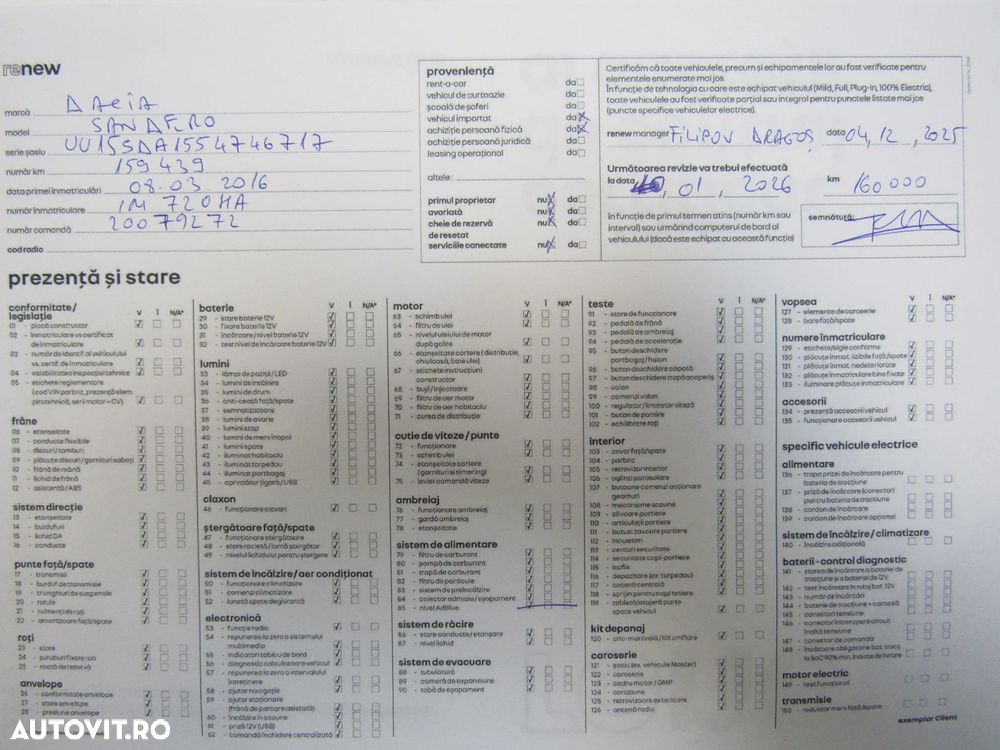 renew
marcă DACIA
model SANDERO
serie șasiu UU15SDA1554746717
număr km 159439
data primei înmatriculări 08.03.2016
număr înmatriculare IM 720HA
număr comandă 20079272
cod radio
proveniență
rent-a-car da
vehicul de curtoazie da
școală de șoferi da
vehicul importat da X
achiziție persoană fizică da X
achiziție persoană juridică da
leasing operațional da
altele:
primul proprietar nu X da
avariată nu X da
cheie de rezervă nu X da
de resetat
serviciile conectate nu X da
Certificăm că toate vehiculele, precum și echipamentele lor au fost verificate pentru
elementele enumerate mai jos.
În funcție de tehnologia cu care este echipat vehiculul (Mild, Full, Plug-in, 100% Electric),
toate vehiculele au fost verificate parțial sau integral pentru punctele listate mai jos
(puncte specifice vehiculelor electrice).
renew manager FILIPOV DRAGOȘ data 04, 12, 2025
Următoarea revizie va trebui efectuată
la data , 01, 2026 km 160000
În funcție de primul termen atins (număr km sau
interval) sau urmărind computerul de bord al
vehiculului (dacă este echipat cu această funcție)
semnătură:
prezență și stare
conformitate/ legislație V I N/A*
01 - placă constructor
02 - înmatriculare vs certificat
de înmatriculare
03 - număr de identif al vehiculului
vs. certif. de înmatriculare
04 - valabilitatea inspecției tehnice
05 - etichete reglementare
(cod VIN parbriz, presiune elem.
pirotehnică, serii motor + CV)
frâne
06 - etanșeitate
07 - conducte flexibile
08 - discuri/tamburi
09 - plăcuțe discuri/garnituri saboți
10 - frână de mână
11 - lichid de frână
12 - asistență/ABS
sistem direcție
13 - etanșeitate
14 - burdufuri
15 - lichid DA
16 - conducte
punte față/spate
17 - transmisii
18 - burduf de transmisie
19 - triunghiuri de suspensie
20 - rotule
21 - rulmenți de roți
22 - amortizoare față/spate
roți
23 - stare
24 - șuruburi fixare roți
25 - roată de rezervă
anvelope
26 - conformitate anvelope
27 - stare anvelope
28 - presiune anvelope
baterie V I N/A*
29 - stare baterie 12V
30 - fixare baterie 12V
31 - încărcare/nivel baterie 12V
32 - test nivel de încărcare baterie 12V
lumini
33 - lămpi de poziții/LED
34 - lumini de întâlnire
35 - lumini de drum
36 - anti-ceață față/spate
37 - semnalizatoare
38 - lumini de avarie
39 - lumini stop
40 - lumini de mers înapoi
41 - lumini spate
42 - iluminat habitaclu
43 - iluminat torpedou
44 - iluminat portbagaj
45 - aprinzător țigară/USB
claxon
46 - funcționare claxon
ștergătoare față/spate
47 - funcționare ștergătoare
48 - stare racletă/lamă ștergător
49 - nivelul lichidului pentru ștergere
sistem de încălzire/aer condiționat
50 - funcționare climatizare
51 - comenzi climatizare
52 - lunetă spate degivrantă
electronică
53 - funcție radio
54 - repunerea la zero a sistemului
multimedia
55 - indicatori tablou de bord
56 - diagnostic calculatoare vehicul
57 - repunerea la zero a intervalului
întreținere
58 - ajutor navigație
59 - ajutor staționare
(frână de parcare asistată)
60 - încălzire în scaune
61 - priză 12V (USB)
62 - comandă închidere centralizată
motor V I N/A*
63 - schimb ulei
64 - filtru de ulei
65 - nivelul uleiului de motor
după golire
66 - etanșeitate cartere (distribuție,
chiuloasă, baie ulei)
67 - etichete instrucțiuni
constructor
68 - bujii/injectoare
69 - filtru de aer motor
70 - filtru de aer habitaclu
71 - curea de distribuție
cutie de viteze / punte
72 - funcționare
73 - schimb ulei
74 - etanșeitate cartere
(garnituri si simering)
75 - levier comandă viteze
ambreiaj
76 - funcționare ambreiaj
77 - gardă ambreiaj
78 - etanșeitate
sistem de alimentare
79 - filtru de carburant
80 - pompă de carburant
81 - trapă de carburant
82 - filtru de particule
83 - sistem de preîncălzire
84 - colector admisie/eșapament
85 - nivel AdBlue
sistem de răcire
86 - stare conducte/etanșare
87 - nivel lichid
sistem de evacuare
88 - tubulatură
89 - cameră de expansiune
90 - tobă de eșapament
teste V I N/A*
91 - stare de funcționare
92 - pedală de frână
93 - pedală de ambreiaj
94 - pedală de accelerație
95 - buton deschidere
portbagaj/haion
96 - buton deschidere capotă
97 - buton deschidere trapă acoperiș
98 - volan
99 - comenzi volan
100 - regulator/limitator viteză
101 - buton de pornire
102 - echilibrare roți
interior
103 - covor față/spate
104 - parbriz
105 - retrovizor interior
106 - oglinzi parasolare
107 - butoane comenzi acționare
geamuri
108 - mecanisme scaune
109 - zăvoare portiere
110 - articulații portiere
111 - butuci zăvoare portiere
112 - încuietori
113 - centuri securitate
114 - securitate copii portiere
115 - isofix
116 - depozitare (ex: torpedou)
117 - cotieră centrală
118 - sprijin pentru cap/tetiere
119 - tabletă/etajeră parte
spate vehicul
kit depanaj
120 - cric-manivelă/Kit umflare
caroserie
121 - șasiu (ex. vehicule Master)
122 - caroserie
123 - cadru motor/GMP
124 - coroziune
125 - retrovizoare exterioare
126 - antenă radio
vopsea V I N/A*
127 - elemente de caroserie
128 - bare față/spate
numere înmatriculare
129 - etichete/sigle conforme
130 - plăcuțe înmat. lizibile față/spate
131 - plăcuțe înmat. nedeteriorate
132 - plăcuțe înmatriculare bine fixate
133 - iluminare plăcuțe înmatriculare
accesorii
134 - prezență accesorii vehicul
135 - funcționare accesorii vehicul
specific vehicule electrice
alimentare
136 - trapa prizei de încărcare pentru
bateria de tracțiune
137 - priză de încărcare (conector)
pentru bateria de tracțiune
138 - cordon de încărcare
139 - cordon de încărcare opțional
sistem de încălzire / climatizare
140 - încălzire adițională
baterii - control diagnostic
141 - starea de încărcare a bateriei de
tracțiune și a bateriei de 12V
142 - test încărcare în rulaj bat. 12V
143 - număr de încărcări
144 - baterie de tracțiune + carcasă
145 - conectori tensiune
146 - conector întrerupere circuit
înaltă tensiune
147 - conector de comandă
148 - încărcare obligatorie bat. tracț.
la SoC 90% min. înainte de livrare
motor electric
149 - test funcțional
transmisie
150 - reductor mers față/spate
exemplar Client
AUTOVIT.RO